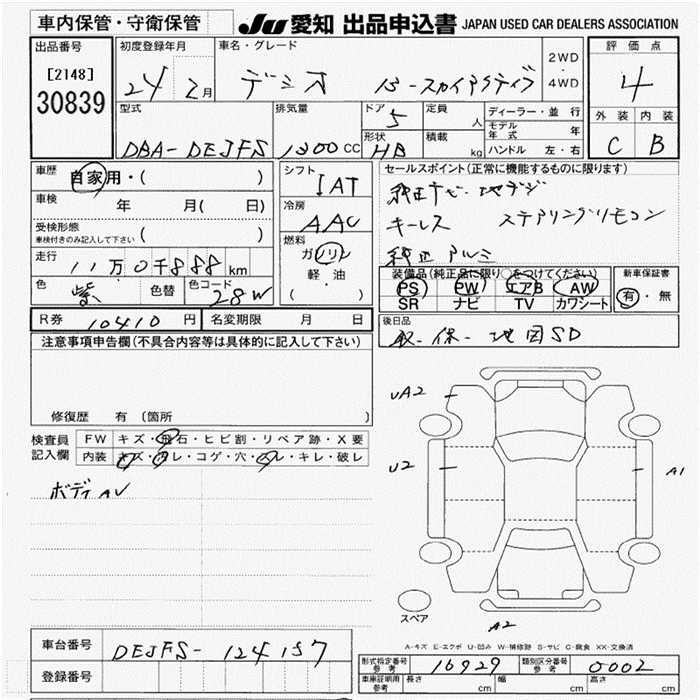 車内保管・守衛保管 JU 愛知 出品申込書 JAPAN USED CAR DEALERS ASSOCIATION
出品番号 初度登録年月 車名・グレード 評価点
[2148] 24年2月 デミオ 13-スカイアクティブ 2WD・4WD 4
30839 型式 排気量 ドア 定員 ディーラー・並行 外装 内装
DBA-DEJFS 1300cc 5 人 モデル年式 年 C B
形状 積載 ハンドル 左・右
HB kg
車歴 自家用・( ) シフト セールスポイント(正常に機能するものに限ります)
IAT 純正ナビ 地デジ
車検 年 月( 日) 冷房 キーレス ステアリングリモコン
受検形態 AAC
車検付きのみ記入して下さい ( ) 燃料 純正アルミ
走行 11万0千888km ガソリン 装備品(純正品に限り○をつけてください) 新車保証書
軽油 PS PW エアB AW 有・無
色 紫 色替 色コード 28W ( ) SR ナビ TV カワシート
R券 10410円 名変期限 月 日 後日品
注意事項申告欄(不具合内容等は具体的に記入して下さい) 取-保-地図SD
修復歴 有 (箇所 )
UA2
検査員 FW キズ・飛石・ヒビ割・リペア跡・X要
記入欄 内装 キズ・ヨゴレ・コゲ・穴・スレ・キレ・破レ
U2 A1
ボディAU
スペア
A2
車台番号 DEJFS-124157 A-キズ E-エクボ U-凹み W-補修跡 S-サビ C-腐食 XX-交換済
型式指定番号 参考 16929 類別区分番号 参考 0002
登録番号 車庫証明用 参考 長さ cm 幅 cm 高さ cm